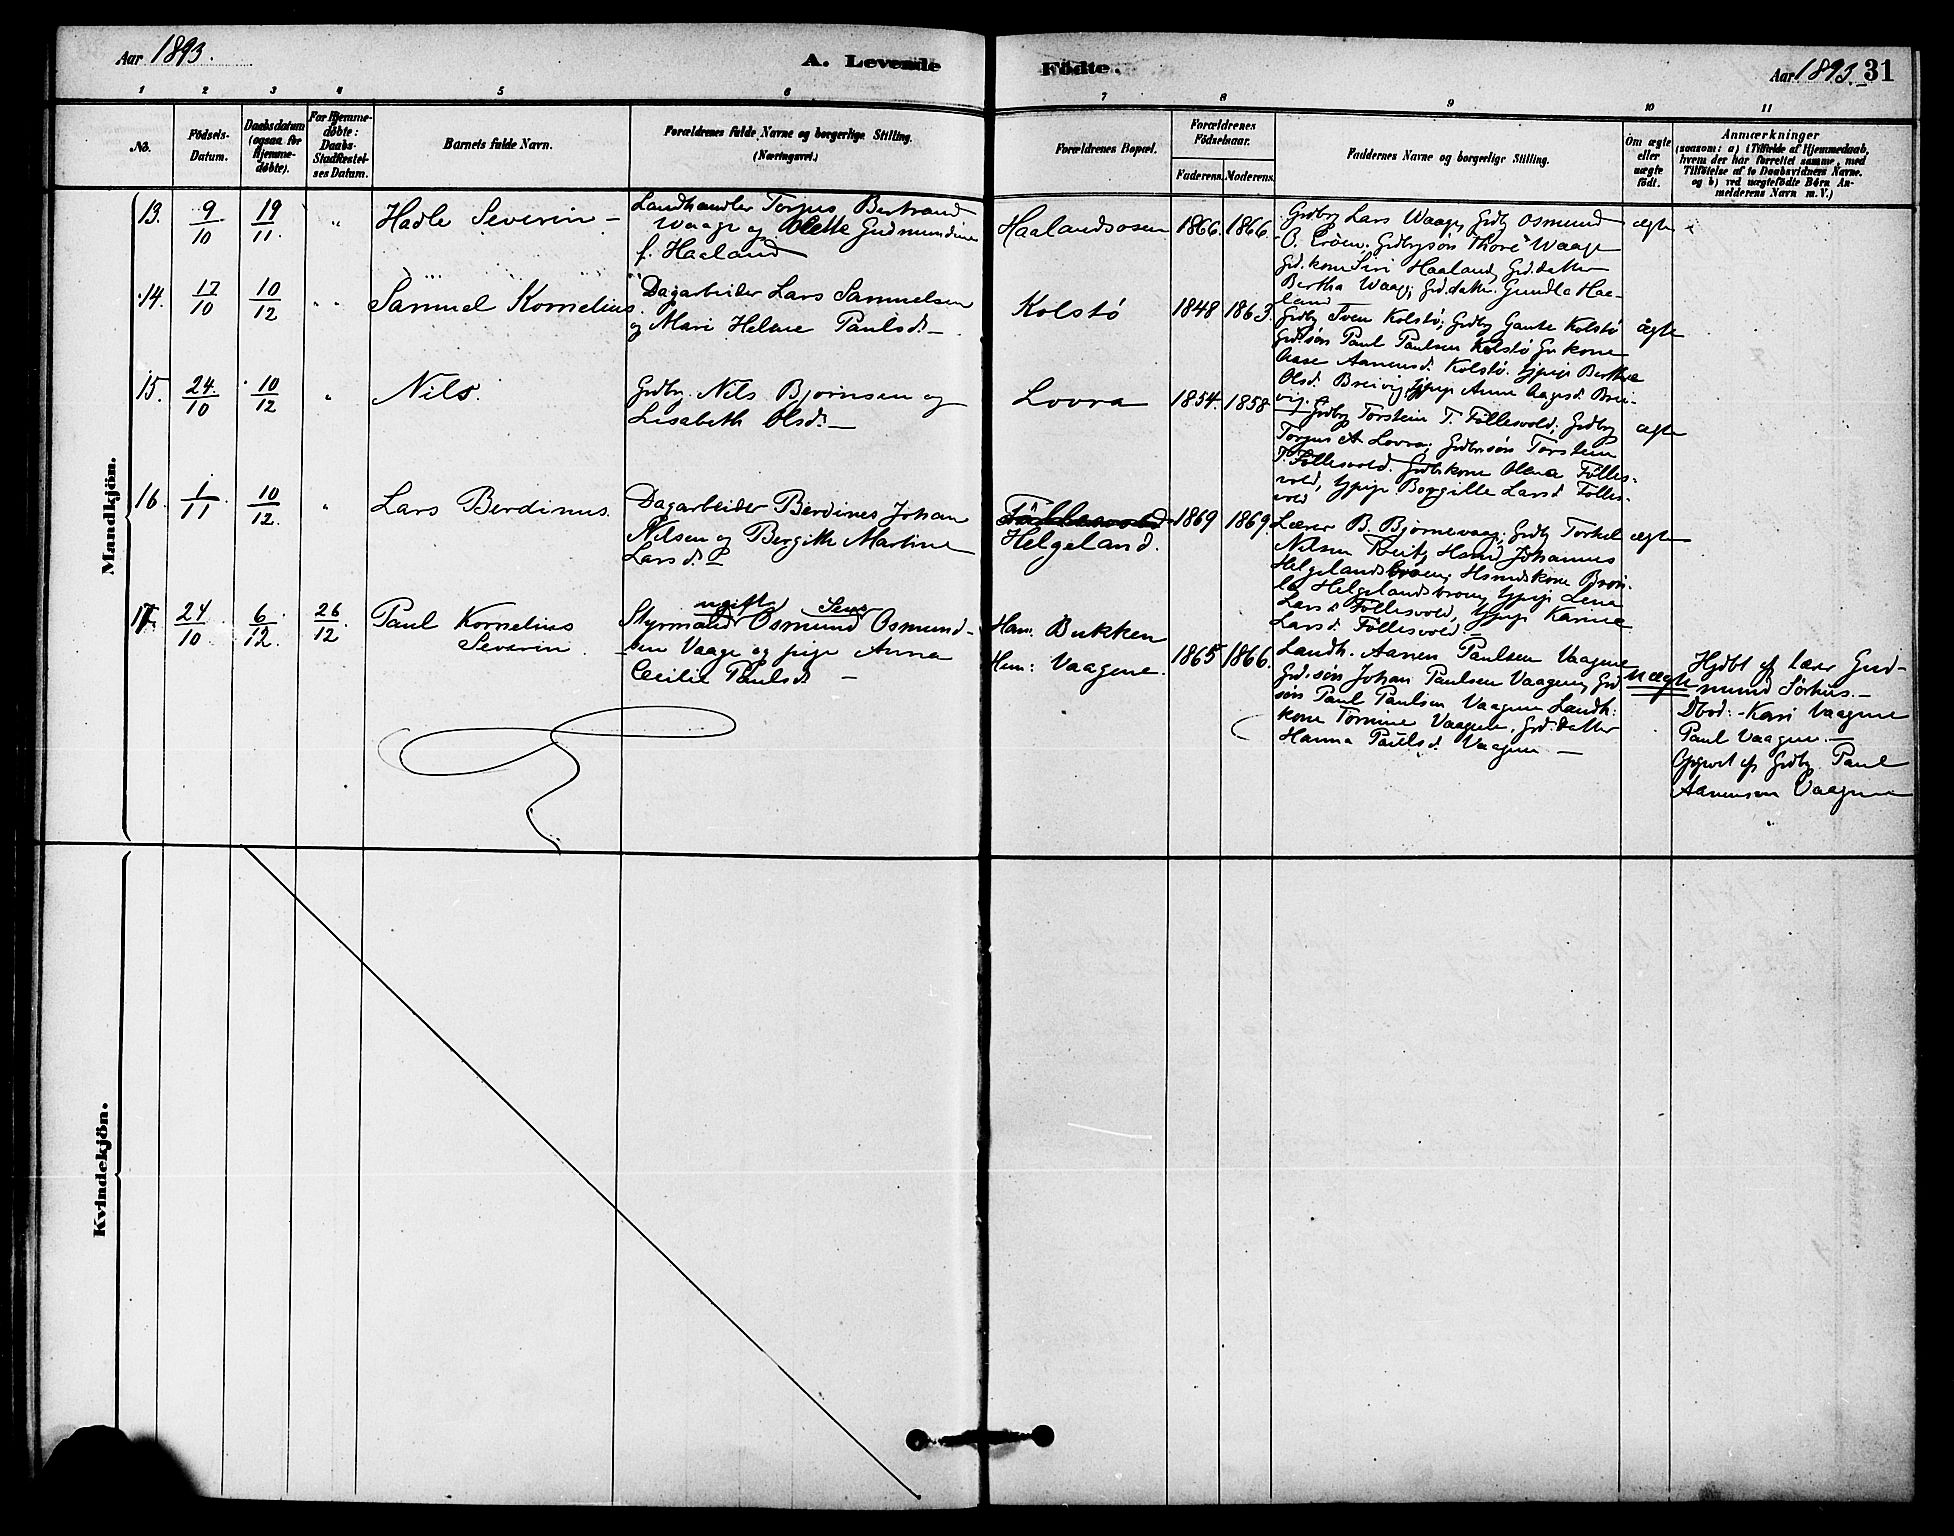 Aar 1893.
A. Levende Födte.
Aar 1893. 31
1 2 3 4 5 6 7 8 9 10 11
No.
Födsels-
Datum.
Daabsdatum
(ogsaa for
Hjemme-
döbte).
For Hjemme-
döbte:
Daabs-
Stadfæstel-
ses Datum.
Barnets fulde Navn.
Forældrenes fulde Navne og borgerlige Stilling.
(Næringsvei.)
Forældrenes Bopæl.
Forældrenes
Födselsaar.
Faderens. Moderens.
Faddernes Navne og borgerlige Stilling.
Om ægte
eller
uægte
födt.
Anmærkninger
(saasom: a) i Tilfælde af Hjemmedaab,
hvem der har forrettet samme, med
Tilföielse af to Daabsvidners Navne.
og b) ved uægtefödte Börn An-
melderens Navn m.V.)
Mandkjön.
13. 9/10 19/11. "
Hadle Severin –
Landhandler Torjus Bertrand
Waage og Olette Gudmundine
f. Haaland
Haalandsosen
1866. 1866.
Grdbrg Lars Waage, Grdbr Osmund
O. Eröen, Grdbrgsön Thore Waage
Grd.kone Siri Haaland, Grd.datter
Bertha Waage, Grd.datter Gundla Haa-
land
ægte
14. 17/10 10/12 " "
Samuel Kornelius.
Dagarbeider Lars Samuelsen
og Mari Helene Paulsd. –
Kolstö
1848 1863.
Grdbr Sven Kolstö, Grdbr Gaute Kolstö
Grd.sön Paul Paulsen Kolstö Gr.kone
Aase Aanensd. Kolstö. Ypige Berthe
Olsd. Breivig, Ypige Anne Aagesd. Brei-
vig.
ægte
15. 24./10 10/12 "
Nils.
Grdbr. Nils Bjørnsen og
Lisabeth Olsd. –
Lovra
1854. 1858
Grdbrg Torstein T. Föllesvold, Grdbrg
Torjus A Lovra, Grdbrsön Torstein
T. Föllesvold. Grdbkone Olena Fölles-
vold, Ypige Borgille Larsd. Fölles-
vold
ægte
16. 1/11. 10/12. "
Lars Berdinus.
Dagarbeider Berdines Johan
Nilsen og Bergithe Martine
Larsd.
Föllesvold
Helgeland.
1869 1869.
Lærer B. Bjørnevaag, Grdbr Torkel
Nilsen, Johannes
Helgelandsbroen, Hsmdskone
Helgelandsbroen, Ypige Lena
Larsd. Föllesvold, Ypige Karine
Larsd. Föllesvold. –
ægte
17. 24/10 6/12. 26/12.
Paul Kornelius
Severin.
ugift
Styrmand Osmund Osmund-
sen Vaage og pige Anna
Cecilie Paulsd. –
Ham: Bukken
Hun: Vaagene.
1865 1866.
Landh. Aanen Paulsen Vaagene
Grd.sön Johan Paulsen Vaagene, Grd
sön Paul Paulsen Vaagene Landh.
kone Tornine Vaagene. Grd.datter
Hanna Paulsd. Vaagene –
uægte
Hjdbt af Lærer Gud-
mund Sörhus. –
Kari Vaagene
Paul Vaagene. –
Opgivet af Grdbr Paul
Aanensen Vaagene
Kvindekjön.